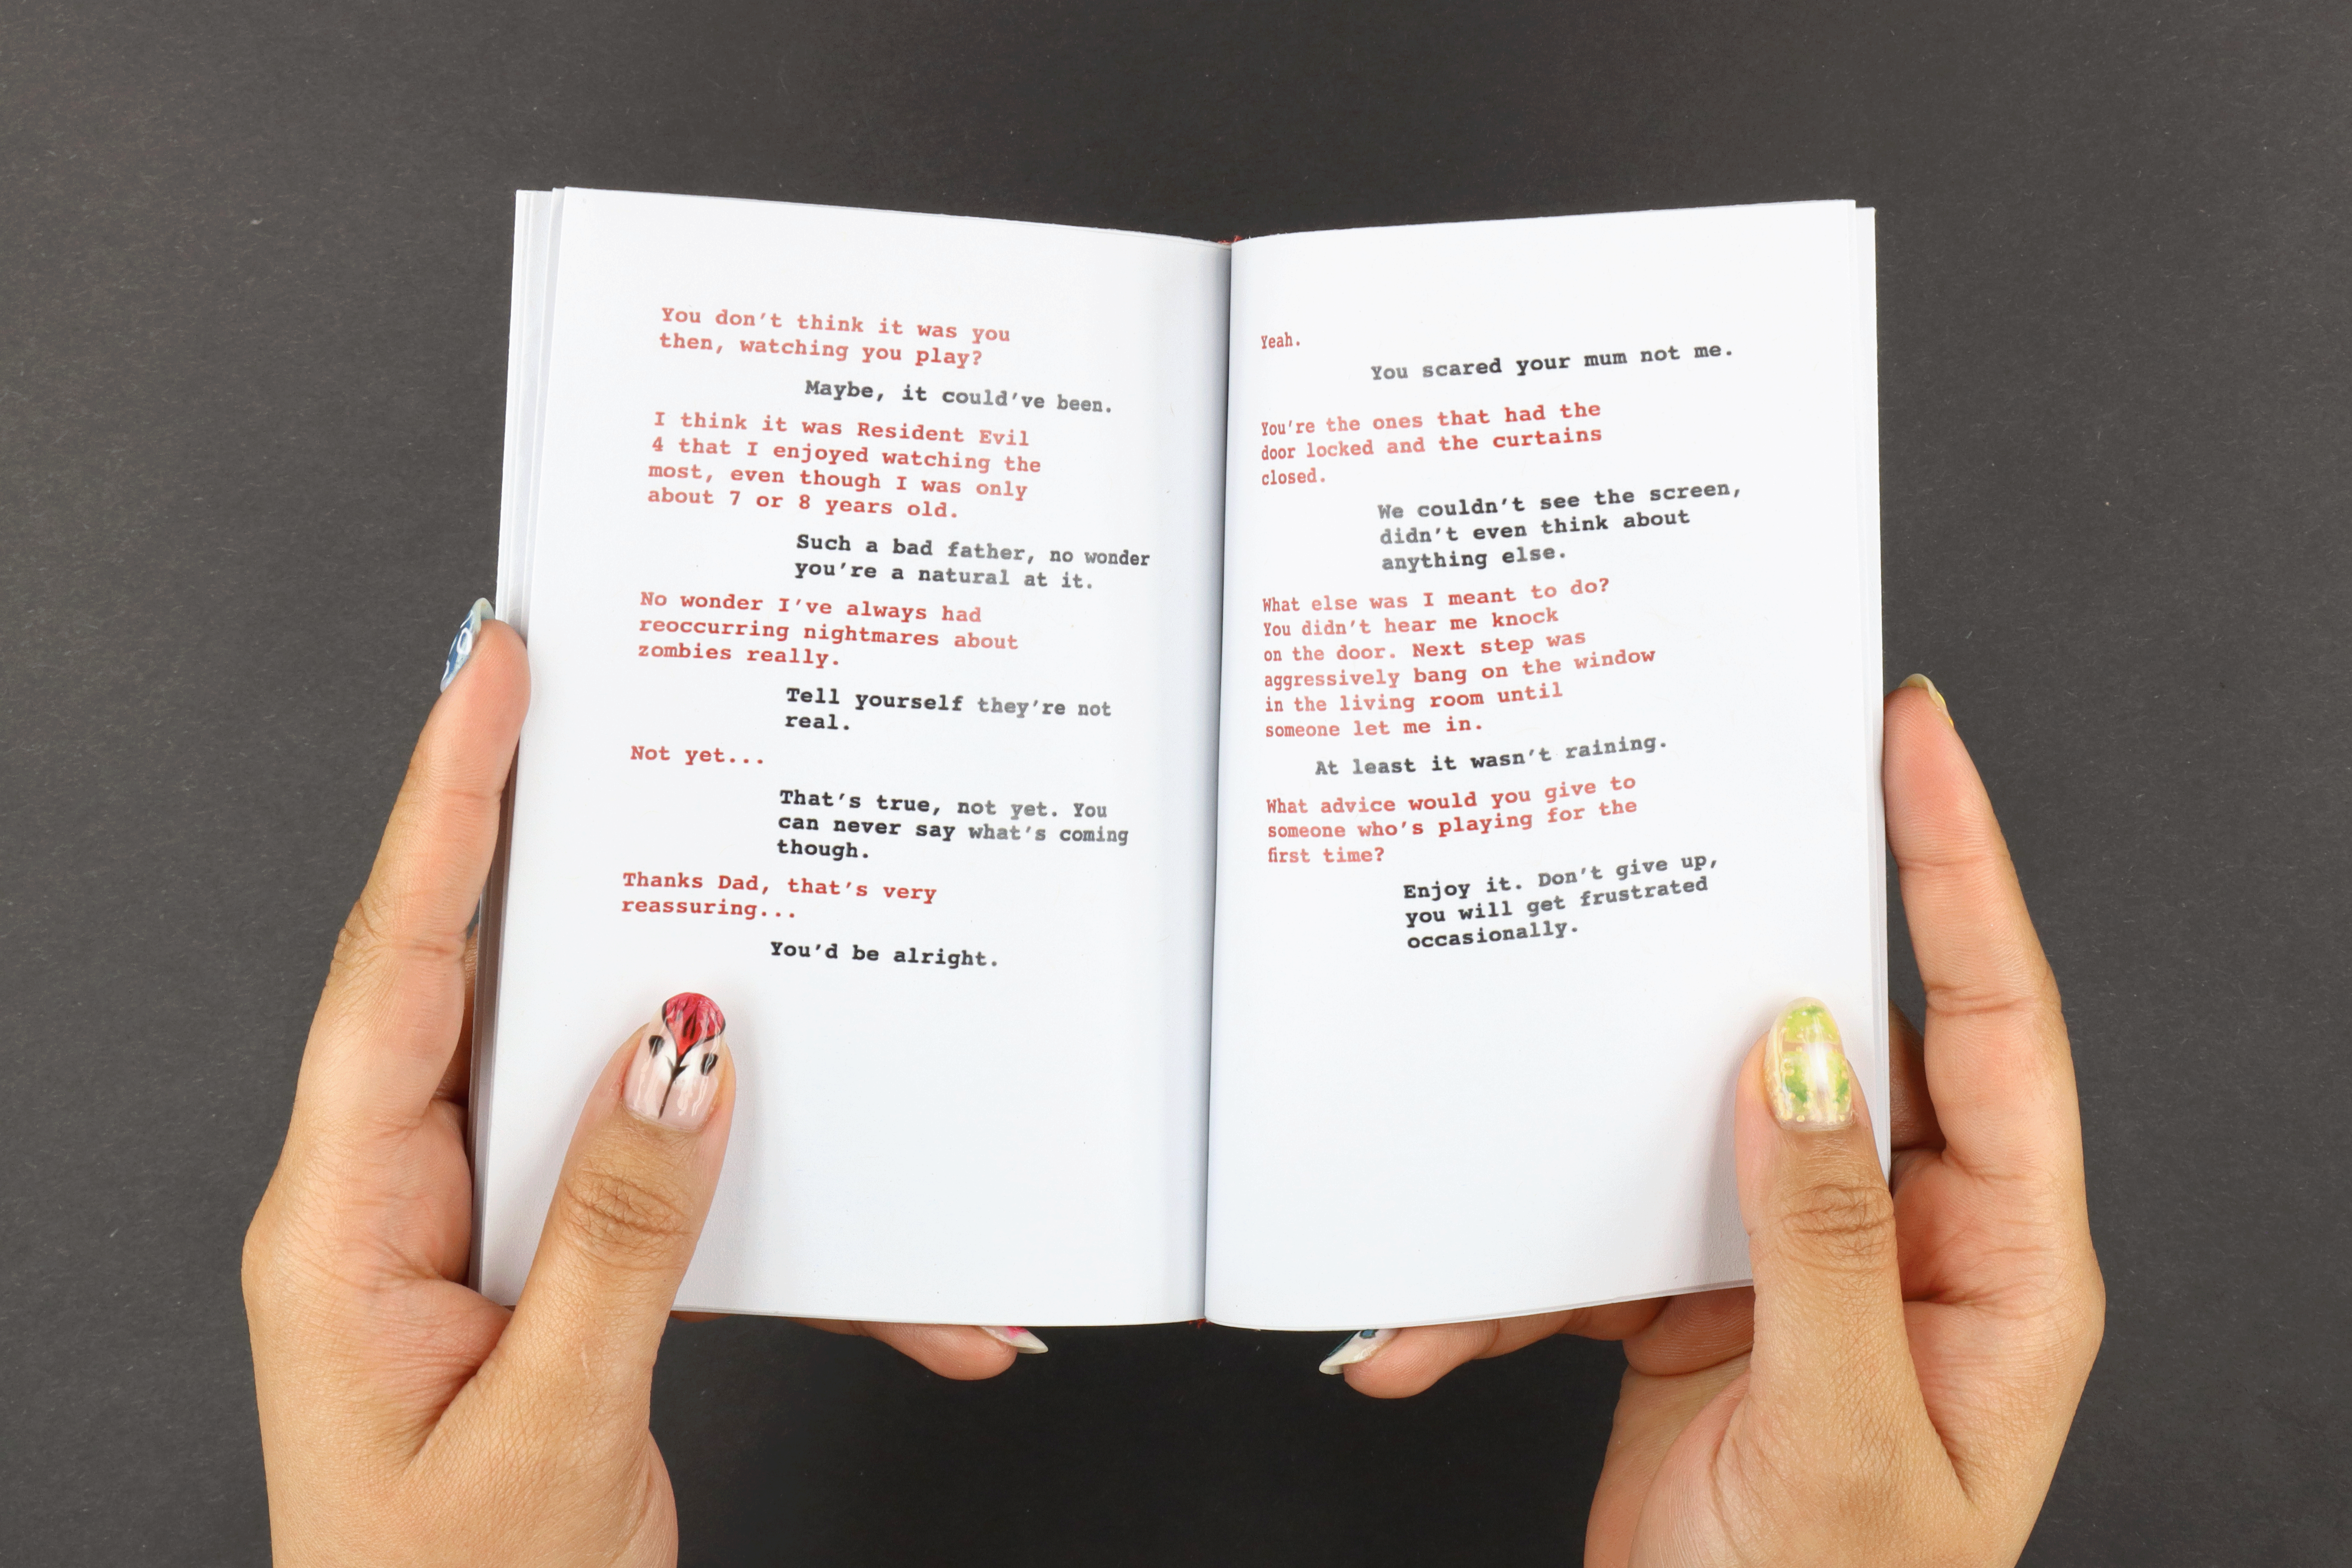 You don't think it was you
then, watching you play?
Maybe, it could've been.
I think it was Resident Evil
4 that I enjoyed watching the
most, even though I was only
about 7 or 8 years old.
Such a bad father, no wonder
you're a natural at it.
No wonder I've always had
reoccurring nightmares about
zombies really.
Tell yourself they're not
real.
Not yet...
That's true, not yet. You
can never say what's coming
though.
Thanks Dad, that's very
reassuring...
You'd be alright.
Yeah.
You scared your mum not me.
You're the ones that had the
door locked and the curtains
closed.
We couldn't see the screen,
didn't even think about
anything else.
What else was I meant to do?
You didn't hear me knock
on the door. Next step was
aggressively bang on the window
in the living room until
someone let me in.
At least it wasn't raining.
What advice would you give to
someone who's playing for the
first time?
Enjoy it. Don't give up,
you will get frustrated
occasionally.